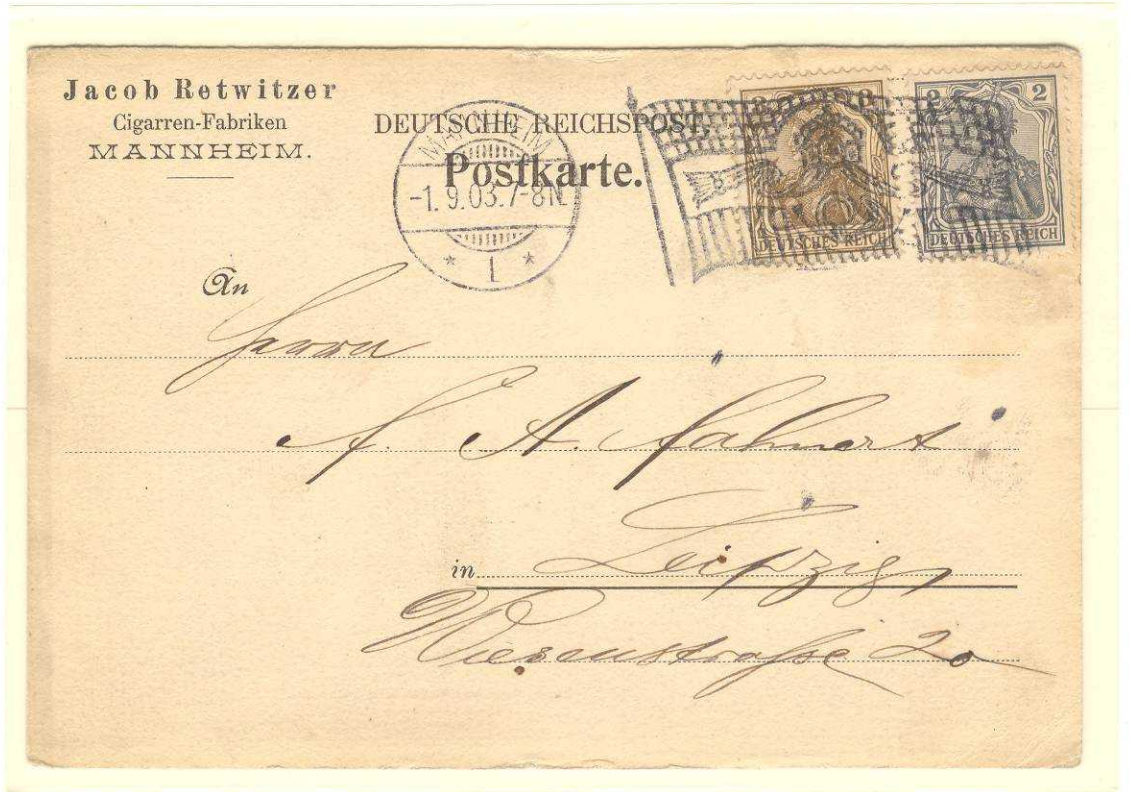 Jacob Retwitzer
Cigarren-Fabriken
MANNHEIM.
DEUTSCHE REICHSPOST.
Postkarte.
MANNHEIM
-1.9.03.7-8N.
* 1 *
3 3
DEUTSCHES REICH
2 2
DEUTSCHES REICH
An
Herrn
A. Fahnert
in Leipzig
Wiesenstraße 20